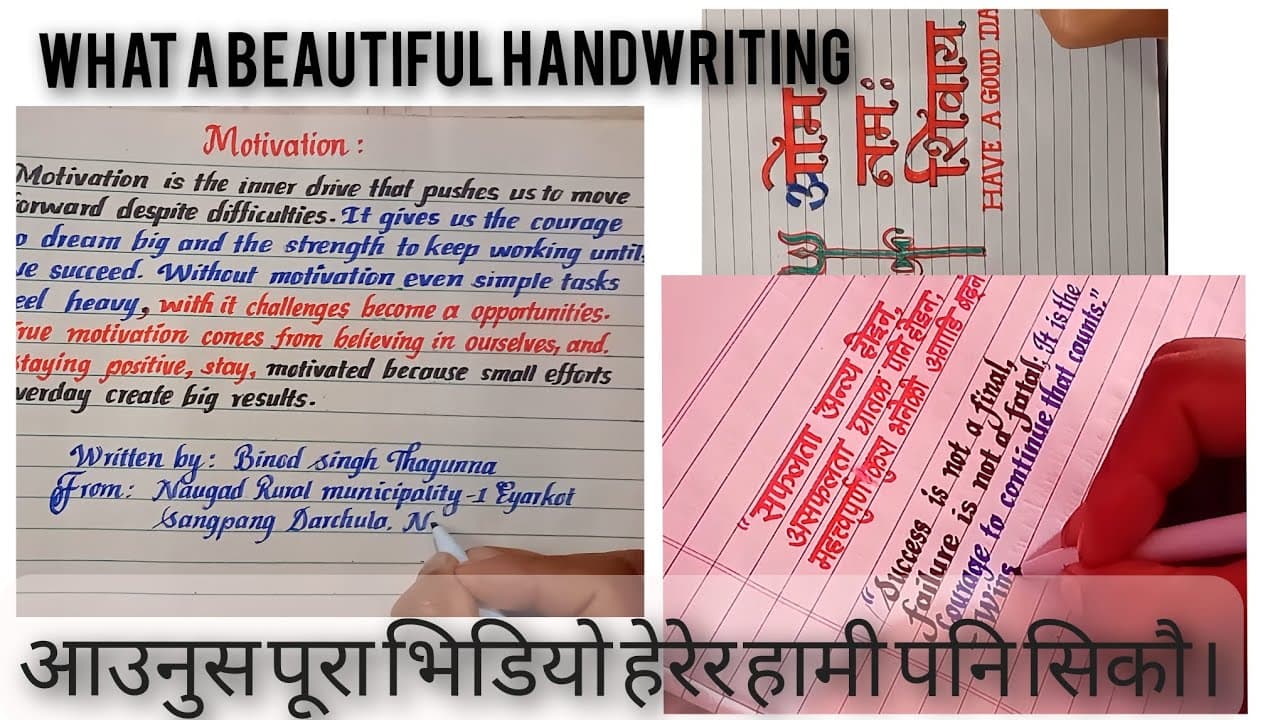 WHAT A BEAUTIFUL HANDWRITING
Motivation :
Motivation is the inner drive that pushes us to move
forward despite difficulties. It gives us the courage
o dream big and the strength to keep working until,
ve succeed. Without motivation even simple tasks
eel heavy, with it challenges become a opportunities.
rue motivation comes from believing in ourselves, and.
staying positive, stay, motivated because small efforts
verday create big results.
Written by : Binod singh Thagunna
From: Naugad Rural municipality -1 Eyarkot
Sangpang Darchula. N
ओम
नमः
शिवाय
HAVE A GOOD DA
"सफलता अन्त्य होइन,
असफलता घातक पनि होइन,
महत्वपुर्ण कुरा भनेको अगाडि बढ्न
"Success is not a final,
failure is not a fatal: It is the
courage to continue that counts."
आउनुस पूरा भिडियो हेरेर हामी पनि सिकौ।